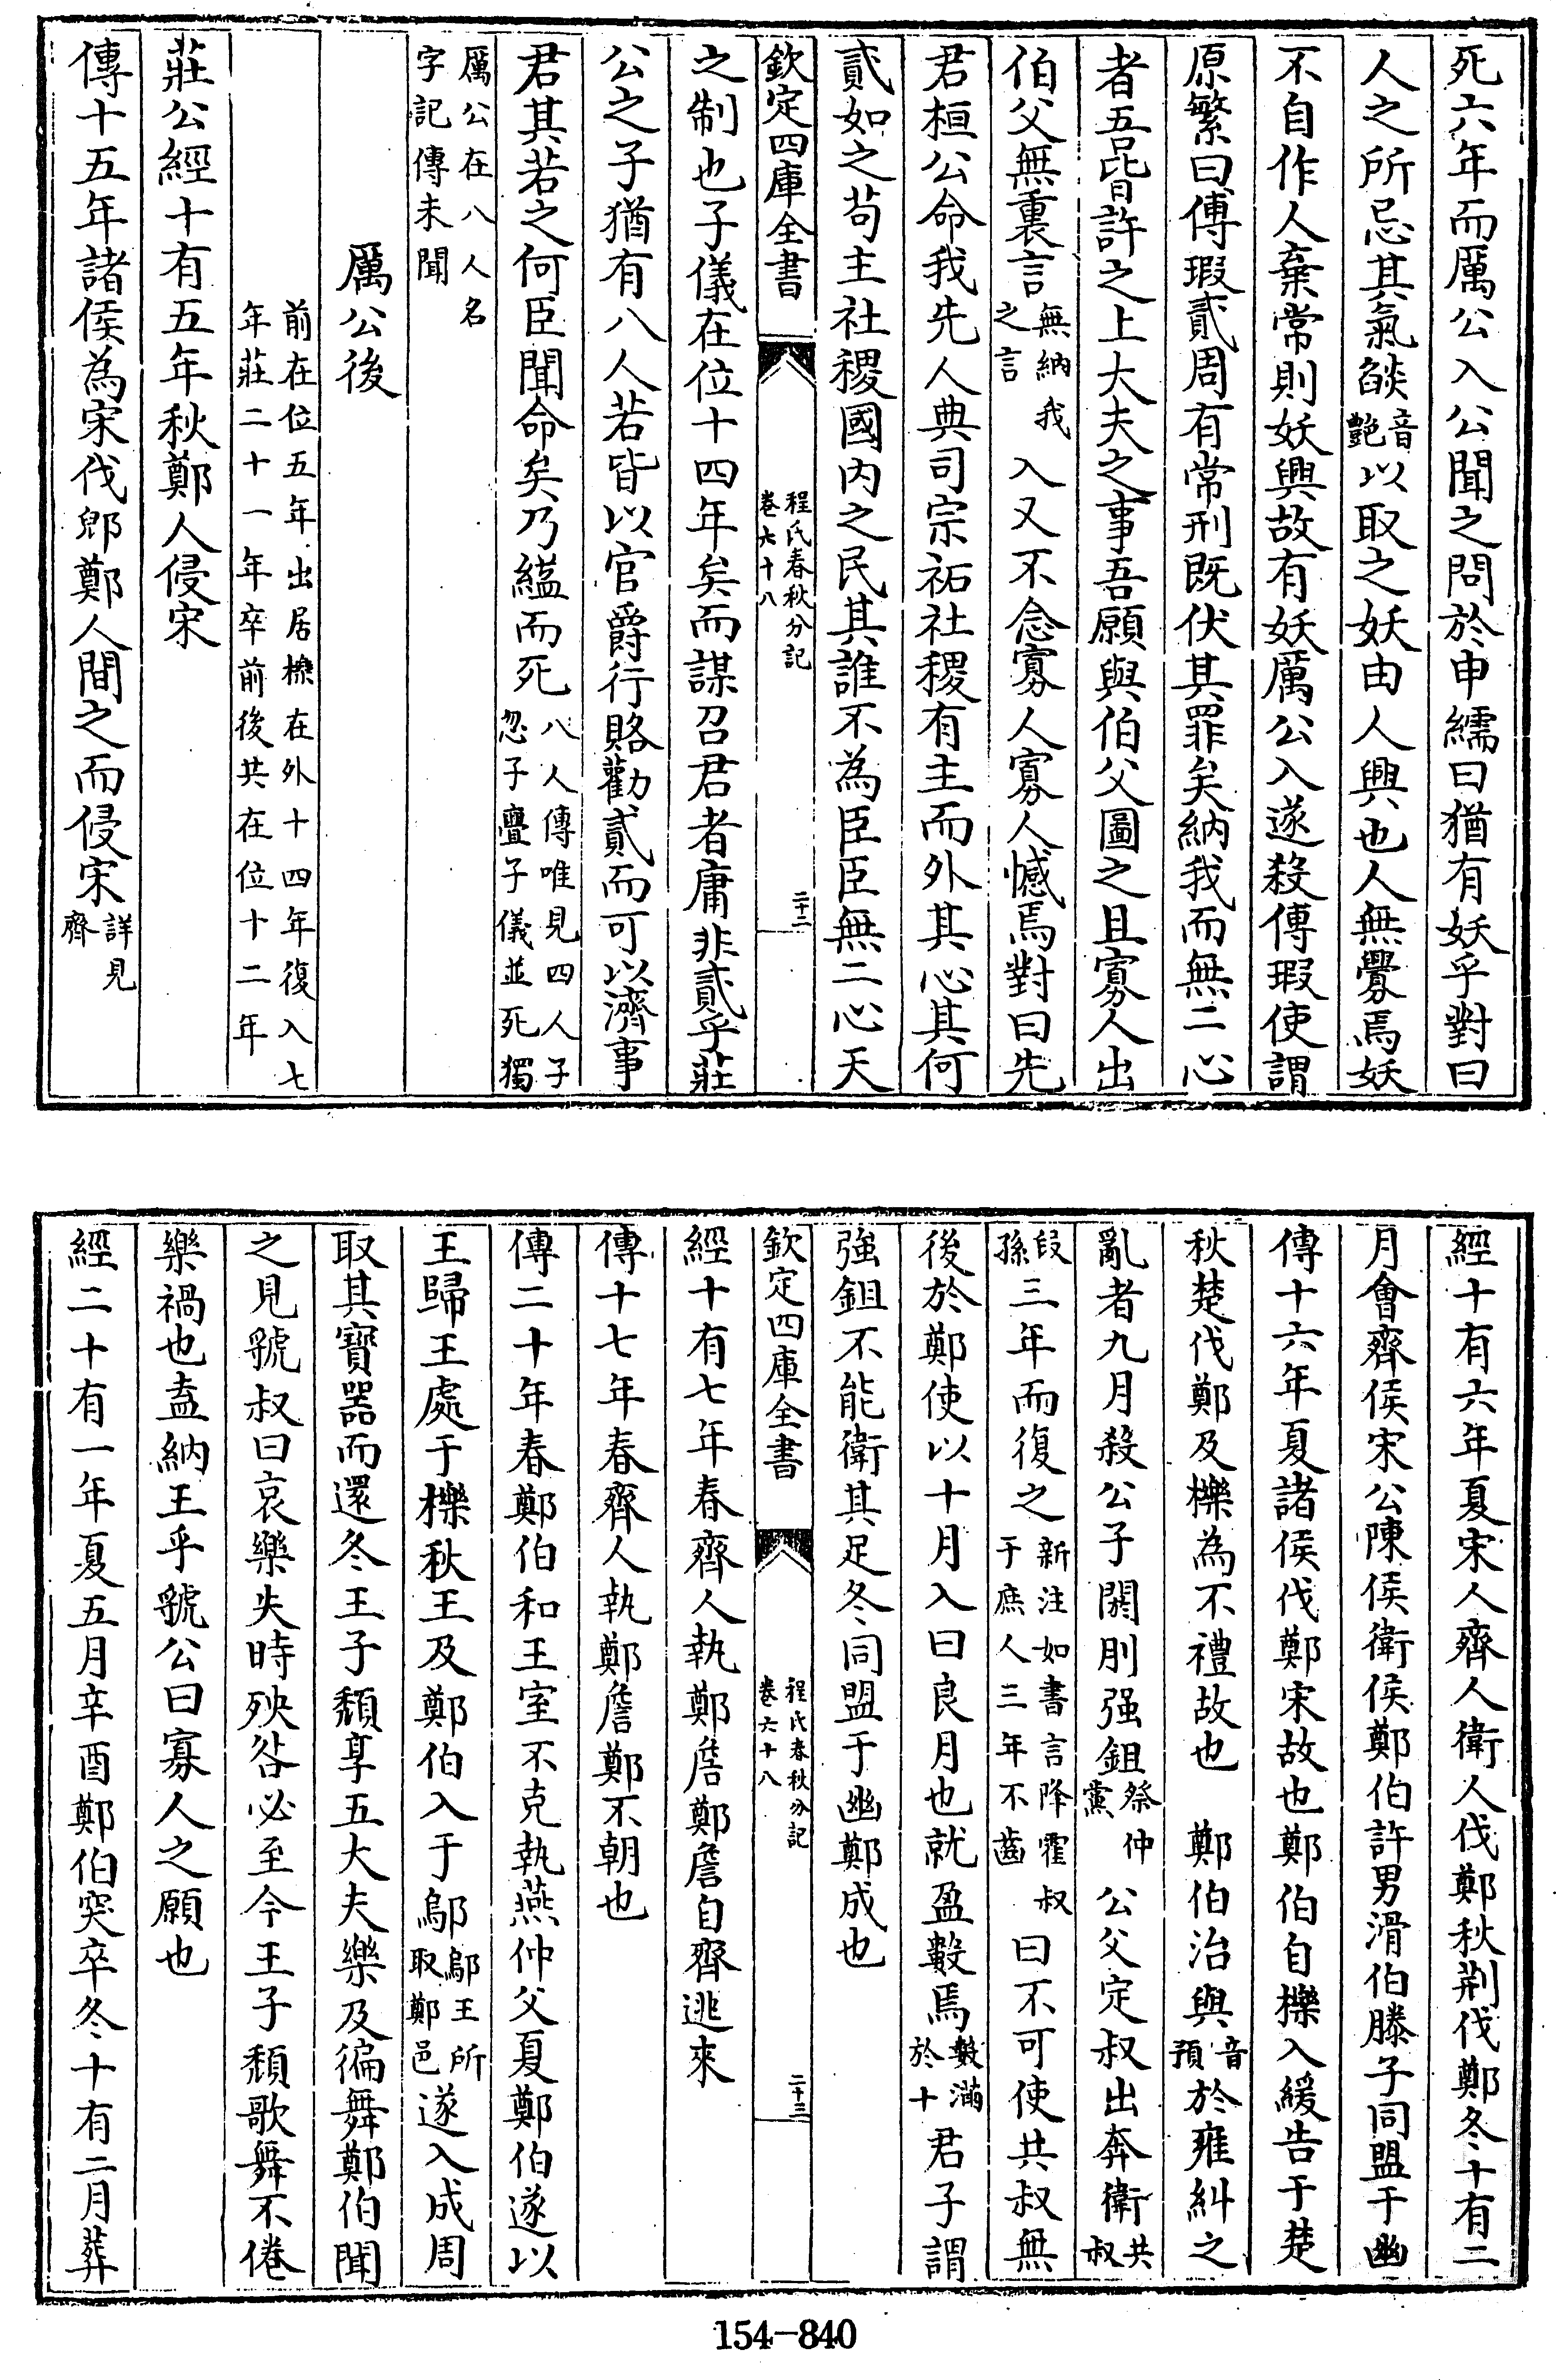 死六年而厲公入公聞之問於申繻曰猶有妖乎對曰
人之所忌其氣燄音艶以取之妖由人興也人無釁焉妖
不自作人棄常則妖興故有妖厲公入遂殺傅瑕使謂
原繁曰傅瑕貳周有常刑既伏其罪矣納我而無二心
者吾皆許之上大夫之事吾願與伯父圖之且寡人出
伯父無裏言無納我之言入又不念寡人寡人憾焉對曰先
君桓公命我先人典司宗祏社稷有主而外其心其何
貳如之苟主社稷國内之民其誰不為臣臣無二心天
欽定四庫全書 程氏春秋分記卷六十八 二十二
之制也子儀在位十四年矣而謀召君者庸非貳乎莊
公之子猶有八人若皆以官爵行賂勸貳而可以濟事
君其若之何臣聞命矣乃縊而死八人傳唯見四人子忽子亹子儀並死獨
厲公在八人名字記傳未聞
厲公後
前在位五年出居櫟在外十四年復入七年莊二十一年卒前後共在位十二年
莊公經十有五年秋鄭人侵宋
傳十五年諸侯為宋伐郳鄭人間之而侵宋詳見齊
經十有六年夏宋人齊人衛人伐鄭秋荆伐鄭冬十有二
月會齊侯宋公陳侯衛侯鄭伯許男滑伯滕子同盟于幽
傳十六年夏諸侯伐鄭宋故也鄭伯自櫟入緩告于楚
秋楚伐鄭及櫟為不禮故也 鄭伯治與音預於雍糾之
亂者九月殺公子閼刖强鉏祭仲黨 公父定叔出奔衛共叔
段孫三年而復之新注如書言降霍叔于庶人三年不齒曰不可使共叔無
後於鄭使以十月入曰良月也就盈數焉數滿於十君子謂
強鉏不能衛其足冬同盟于幽鄭成也
欽定四庫全書 程氏春秋分記卷六十八 二十三
經十有七年春齊人執鄭詹鄭詹自齊逃來
傳十七年春齊人執鄭詹鄭不朝也
傳二十年春鄭伯和王室不克執燕仲父夏鄭伯遂以
王歸王處于櫟秋王及鄭伯入于鄔鄔王所取鄭邑遂入成周
取其寶器而還冬王子頹享五大夫樂及徧舞鄭伯聞
之見虢叔曰哀樂失時殃咎必至今王子頹歌舞不倦
樂禍也盍納王乎虢公曰寡人之願也
經二十有一年夏五月辛酉鄭伯突卒冬十有二月葬
154-840